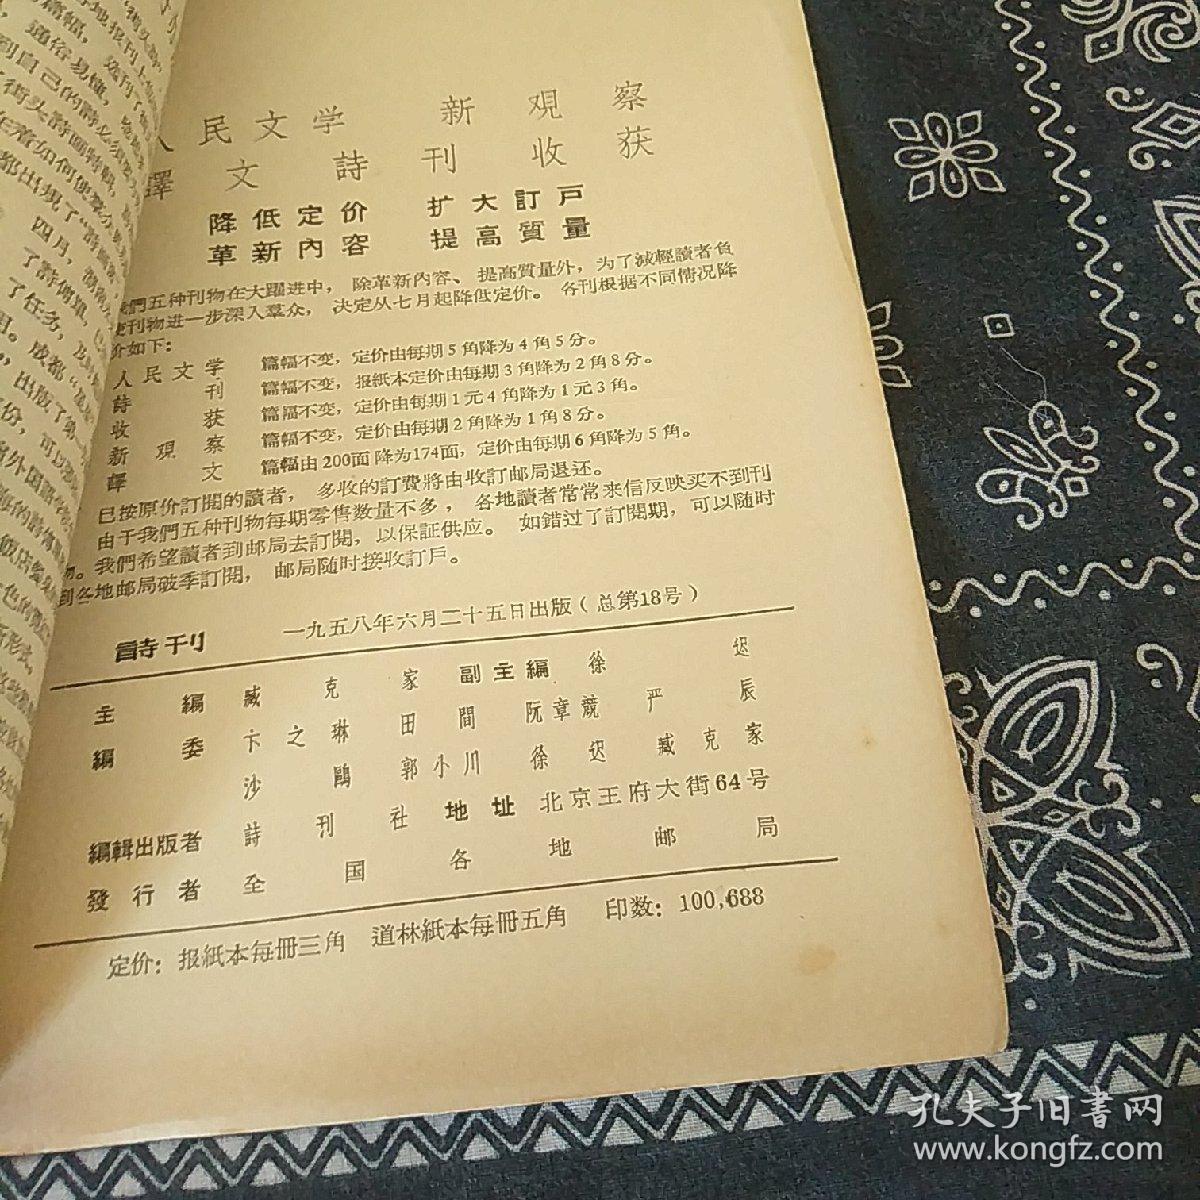 人民文学 新观察
譯文 詩刊 收获
降低定价 扩大訂戶
革新內容 提高質量
我們五种刊物在大躍进中，除革新內容、提高質量外，为了减輕讀者負
使刊物进一步深入羣众，决定从七月起降低定价。各刊根据不同情况降
价如下：
人民文学 篇幅不变，定价由每期5角降为4角5分。
詩刊 篇幅不变，报紙本定价由每期3角降为2角8分。
收获 篇幅不变，定价由每期1元4角降为1元3角。
新观察 篇幅不变，定价由每期2角降为1角8分。
譯文 篇幅由200面降为174面，定价由每期6角降为5角。
已按原价訂閱的讀者，多收的訂費將由收訂邮局退还。
由于我們五种刊物每期零售数量不多，各地讀者常常来信反映买不到刊
物。我們希望讀者到邮局去訂閱，以保証供应。如錯过了訂閱期，可以随时
到各地邮局破季訂閱，邮局随时接收訂戶。
詩刊 一九五八年六月二十五日出版（总第18号）
主編 臧克家 副主編 徐迟
編委 卞之琳 田間 阮章競 严辰
沙鷗 郭小川 徐迟 臧克家
編輯出版者 詩刊社 地址 北京王府大街64号
發行者 全国各地邮局
定价：报紙本每冊三角 道林紙本每冊五角 印数：100,688
孔夫子旧書网
www.kongfz.com